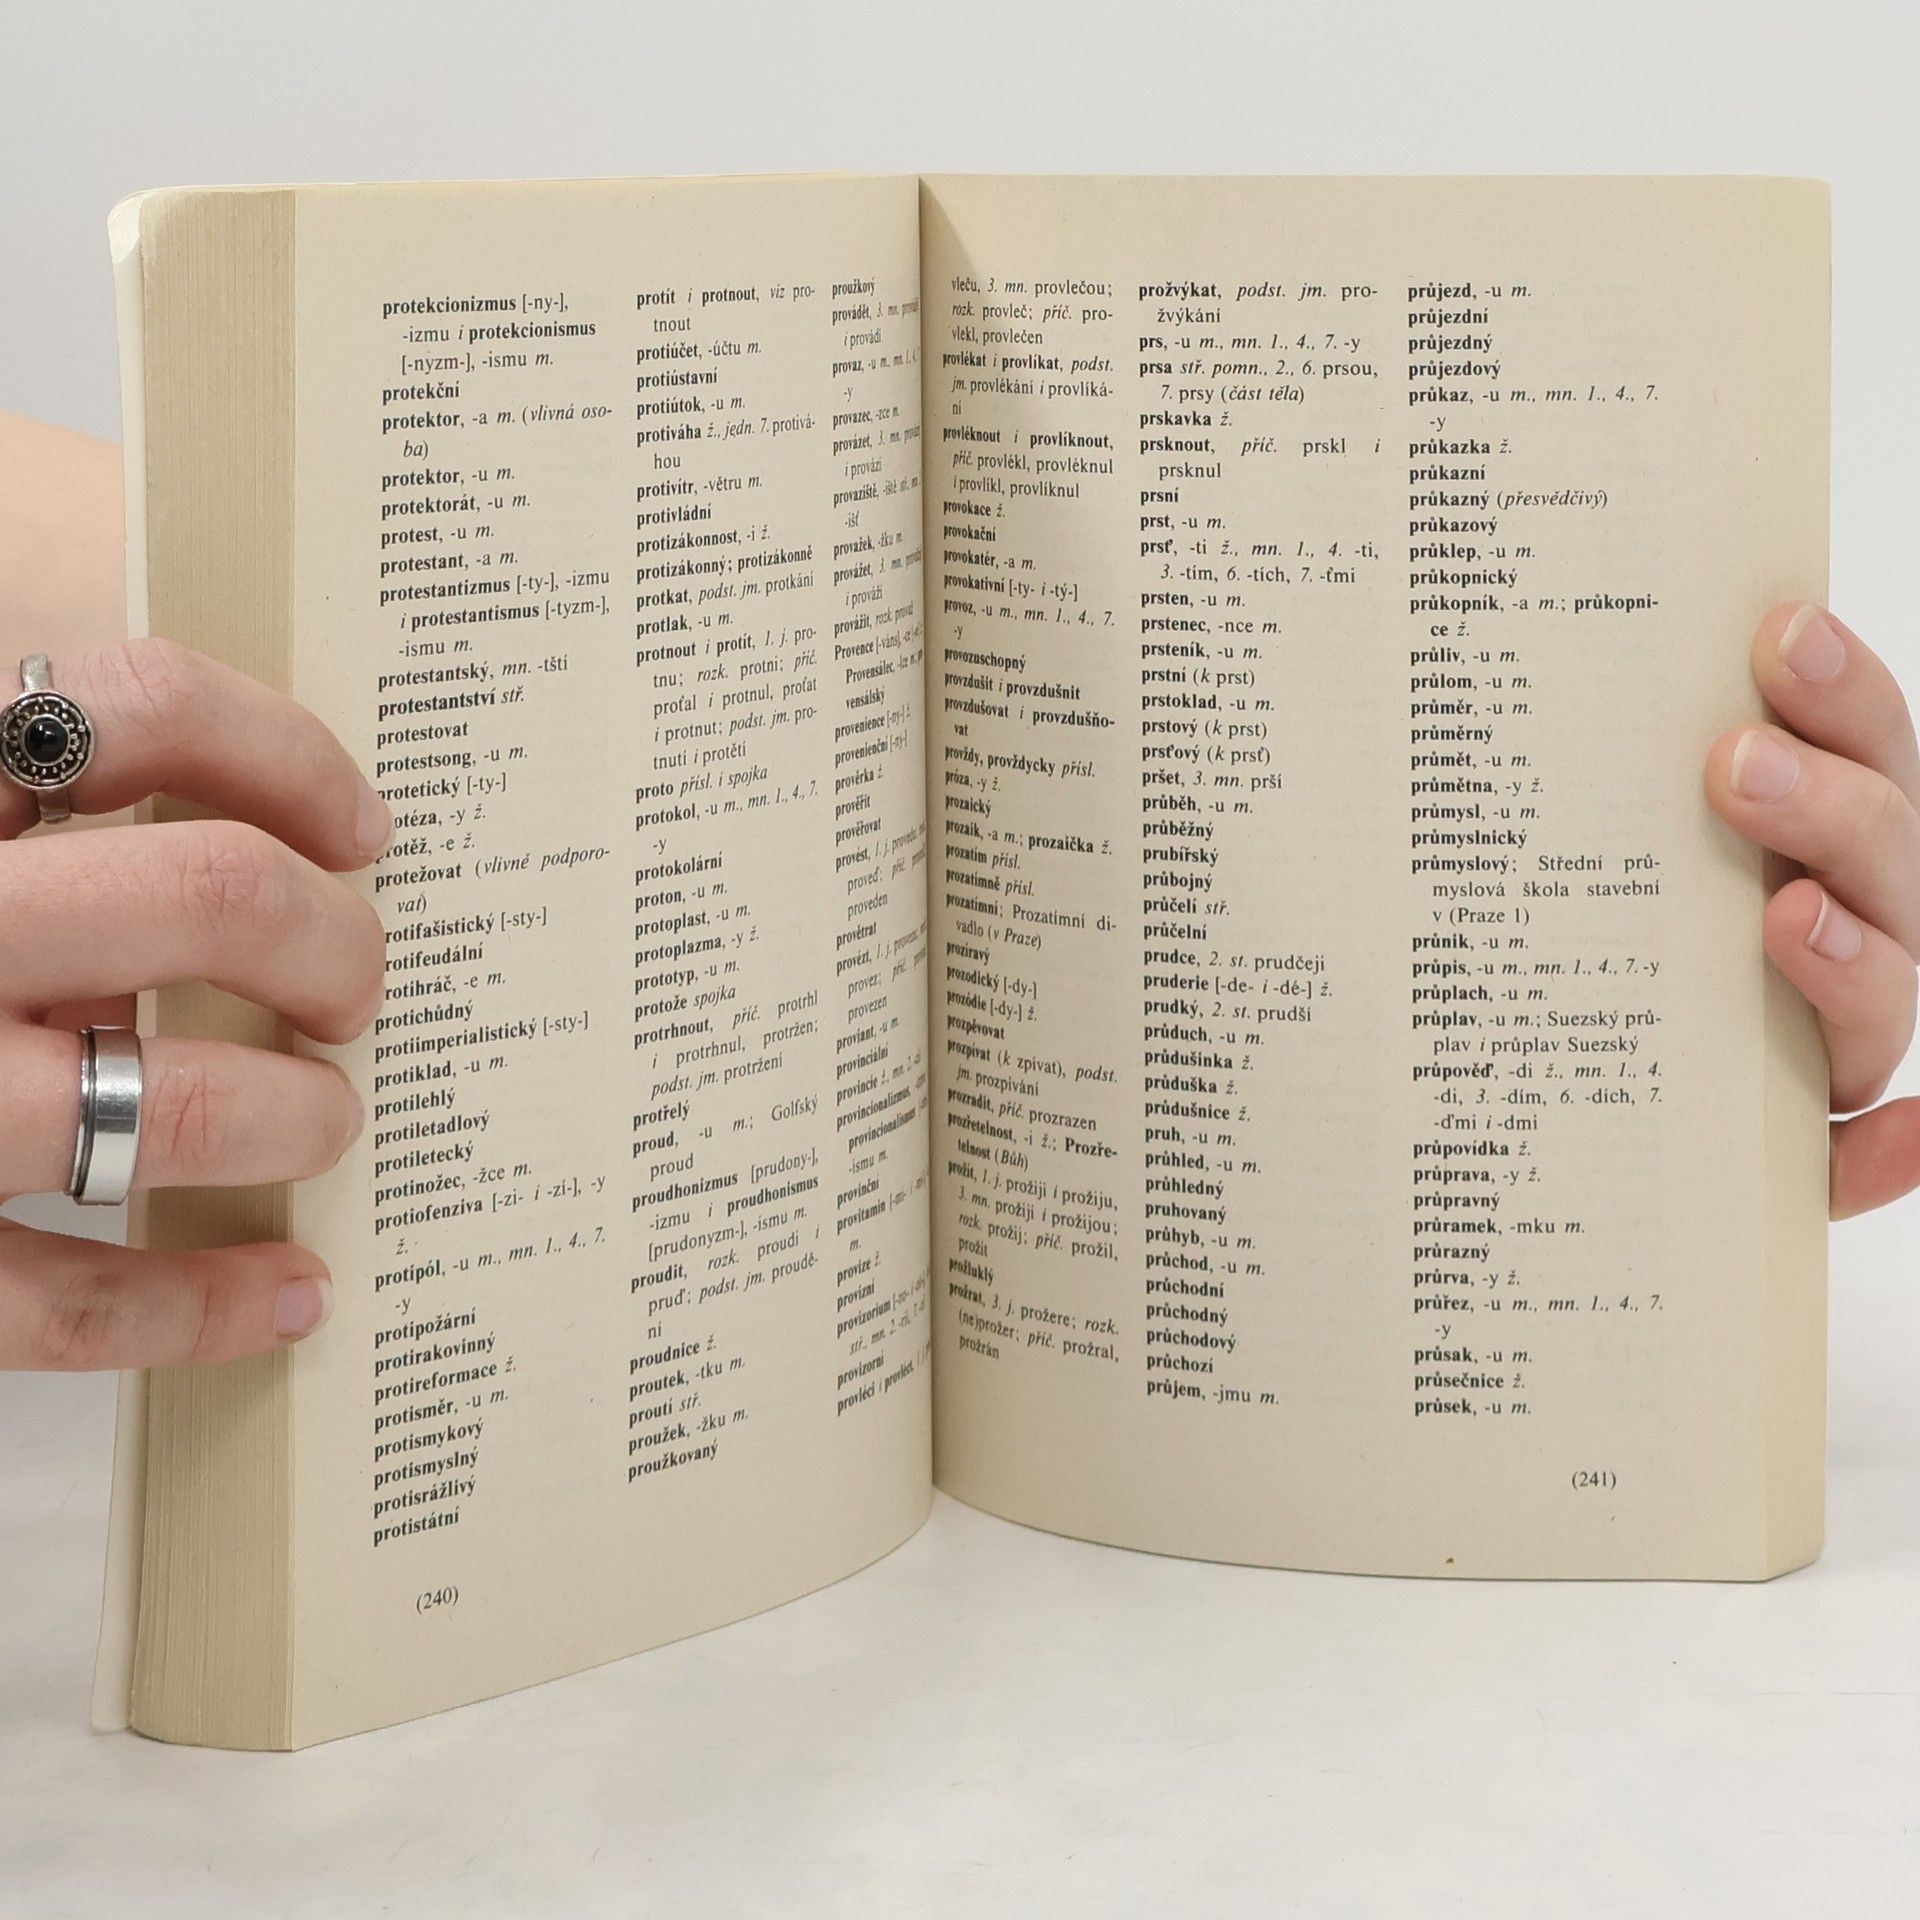 protekcionizmus [-ny-],
-izmu i protekcionismus
[-nyzm-], -ismu m.
protekční
protektor, -a m. (vlivná oso-
ba)
protektor, -u m.
protektorát, -u m.
protest, -u m.
protestant, -a m.
protestantizmus [-ty-], -izmu
i protestantismus [-tyzm-],
-ismu m.
protestantský, mn. -tští
protestantství stř.
protestovat
protestsong, -u m.
rotetický [-ty-]
otéza, -y ž.
rotěž, -e ž.
protežovat (vlivně podporo-
vat)
rotifašistický [-sty-]
rotifeudální
rotihráč, -e m.
protichůdný
protiimperialistický [-sty-]
protiklad, -u m.
protilehlý
protiletadlový
protiletecký
protinožec, -žce m.
protiofenziva [-zi- i -zí-], -y
ž.
protipól, -u m., mn. 1., 4., 7.
-y
protipožární
protirakovinný
protireformace ž.
protisměr, -u m.
protismykový
protismyslný
protisrážlivý
protistátní
(240)
protít i protnout, viz pro-
tnout
protiúčet, -účtu m.
protiústavní
protiútok, -u m.
protiváha ž., jedn. 7. protivá-
hou
protivítr, -větru m.
protivládní
protizákonnost, -i ž.
protizákonný; protizákonně
protkat, podst. jm. protkání
protlak, -u m.
protnout i protít, 1. j. pro-
tnu; rozk. protni; příč.
proťal i protnul, proťat
i protnut; podst. jm. pro-
tnutí i protětí
proto přísl. i spojka
protokol, -u m., mn. 1., 4., 7.
-y
protokolární
proton, -u m.
protoplast, -u m.
protoplazma, -y ž.
prototyp, -u m.
protože spojka
protrhnout, příč. protrhl
i protrhnul, protržen;
podst. jm. protržení
protřelý
proud, -u m.; Golfský
proud
proudhonizmus [prudony-],
-izmu i proudhonismus
[prudonyzm-], -ismu m.
proudit, rozk. proudi i
pruď; podst. jm. proudě-
ní
proudnice ž.
proutek, -tku m.
proutí stř.
proužek, -žku m.
proužkovaný
proužkový
provádět, 3. mn.
i provádí
provaz, -u m., mn. 1., 4.
-y
provazec, -zce m.
provázet, 3. mn.
i provází
provaziště, -iště stř., mn.
-išť
provázek, -zku m.
provážet, 3. mn.
i prováži
provážit, rozk.
Provence
Provensálec, -lce m.;
vensálský
provenience [-ny-] ž.
provenienční [-ny-]
prověrka ž.
prověřit
prověřovat
provést, 1. j. provedu;
proveď; příč.
proveden
provětrat
provézt, 1. j. provezu;
provez; příč.
provezen
proviant, -u m.
provinciální
provincie ž., mn. 2.
provincionalizmus,
provincionalismus
-ismu m.
provinční
provitamin
m.
provize ž.
provizní
provizorium
stř., mn. 2.
provizorní
provléci i provléct, 1. j.
vleču, 3. mn. provlečou;
rozk. provleč; příč. pro-
vlekl, provlečen
provlékat i provlíkat, podst.
jm. provlékání i provlíká-
ní
provléknout i provlíknout,
příč. provlékl, provléknul
i provlíkl, provlíknul
provokace ž.
provokační
provokatér, -a m.
provokativní [-ty- i -tý-]
provoz, -u m., mn. 1., 4., 7.
-y
provozuschopný
provzdušit i provzdušnit
provzdušovat i provzdušňo-
vat
provždy, provždycky přísl.
próza, -y ž.
prozaický
prozaik, -a m.; prozaička ž.
prozatím přísl.
prozatímně přísl.
prozatímní; Prozatímní di-
vadlo (v Praze)
prozíravý
prozodický [-dy-]
prozódie [-dy-] ž.
prozpěvovat
prozpívat (k zpívat), podst.
jm. prozpívání
prozradit, příč. prozrazen
prozřetelnost, -i ž.; Prozře-
telnost (Bůh)
prožít, 1. j. prožiji i prožiju,
3. mn. prožijí i prožijou;
rozk. prožij; příč. prožil,
prožit
prožluklý
prožrat, 3. j. prožere; rozk.
(ne)prožer; příč. prožral,
prožrán
prožvýkat, podst. jm. pro-
žvýkání
prs, -u m., mn. 1., 4., 7. -y
prsa stř. pomn., 2., 6. prsou,
7. prsy (část těla)
prskavka ž.
prsknout, příč. prskl i
prsknul
prsní
prst, -u m.
prsť, -ti ž., mn. 1., 4. -ti,
3. -tím, 6. -tích, 7. -ťmi
prsten, -u m.
prstenec, -nce m.
prsteník, -u m.
prstní (k prst)
prstoklad, -u m.
prstový (k prst)
prsťový (k prsť)
pršet, 3. mn. prší
průběh, -u m.
průběžný
prubířský
průbojný
průčelí stř.
průčelní
prudce, 2. st. prudčeji
pruderie [-de- i -dé-] ž.
prudký, 2. st. prudší
průduch, -u m.
průdušinka ž.
průduška ž.
průdušnice ž.
pruh, -u m.
průhled, -u m.
průhledný
pruhovaný
průhyb, -u m.
průchod, -u m.
průchodní
průchodný
průchodový
průchozí
průjem, -jmu m.
průjezd, -u m.
průjezdní
průjezdný
průjezdový
průkaz, -u m., mn. 1., 4., 7.
-y
průkazka ž.
průkazní
průkazný (přesvědčivý)
průkazový
průklep, -u m.
průkopnický
průkopník, -a m.; průkopni-
ce ž.
průliv, -u m.
průlom, -u m.
průměr, -u m.
průměrný
průmět, -u m.
průmětna, -y ž.
průmysl, -u m.
průmyslnický
průmyslový; Střední prů-
myslová škola stavební
v (Praze 1)
průnik, -u m.
průpis, -u m., mn. 1., 4., 7. -y
průplach, -u m.
průplav, -u m.; Suezský prů-
plav i průplav Suezský
průpověď, -di ž., mn. 1., 4.
-di, 3. -dím, 6. -dích, 7.
-ďmi i -dmi
průpovídka ž.
průprava, -y ž.
průpravný
průramek, -mku m.
průrazný
průrva, -y ž.
průřez, -u m., mn. 1., 4., 7.
-y
průsak, -u m.
průsečnice ž.
průsek, -u m.
(241)